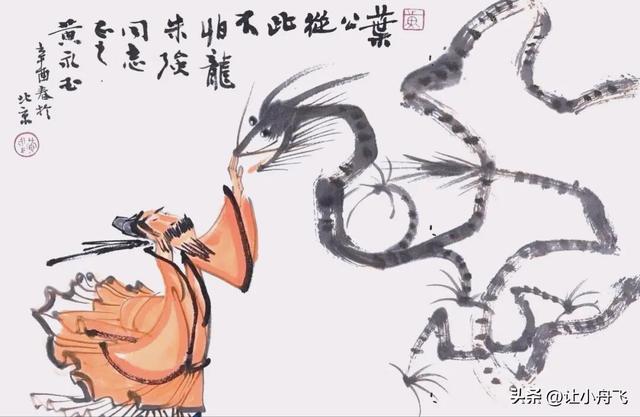 葉公從此不怕龍
朱
同志
正之
黃永玉
辛酉春於北京
头条 @让小舟飞